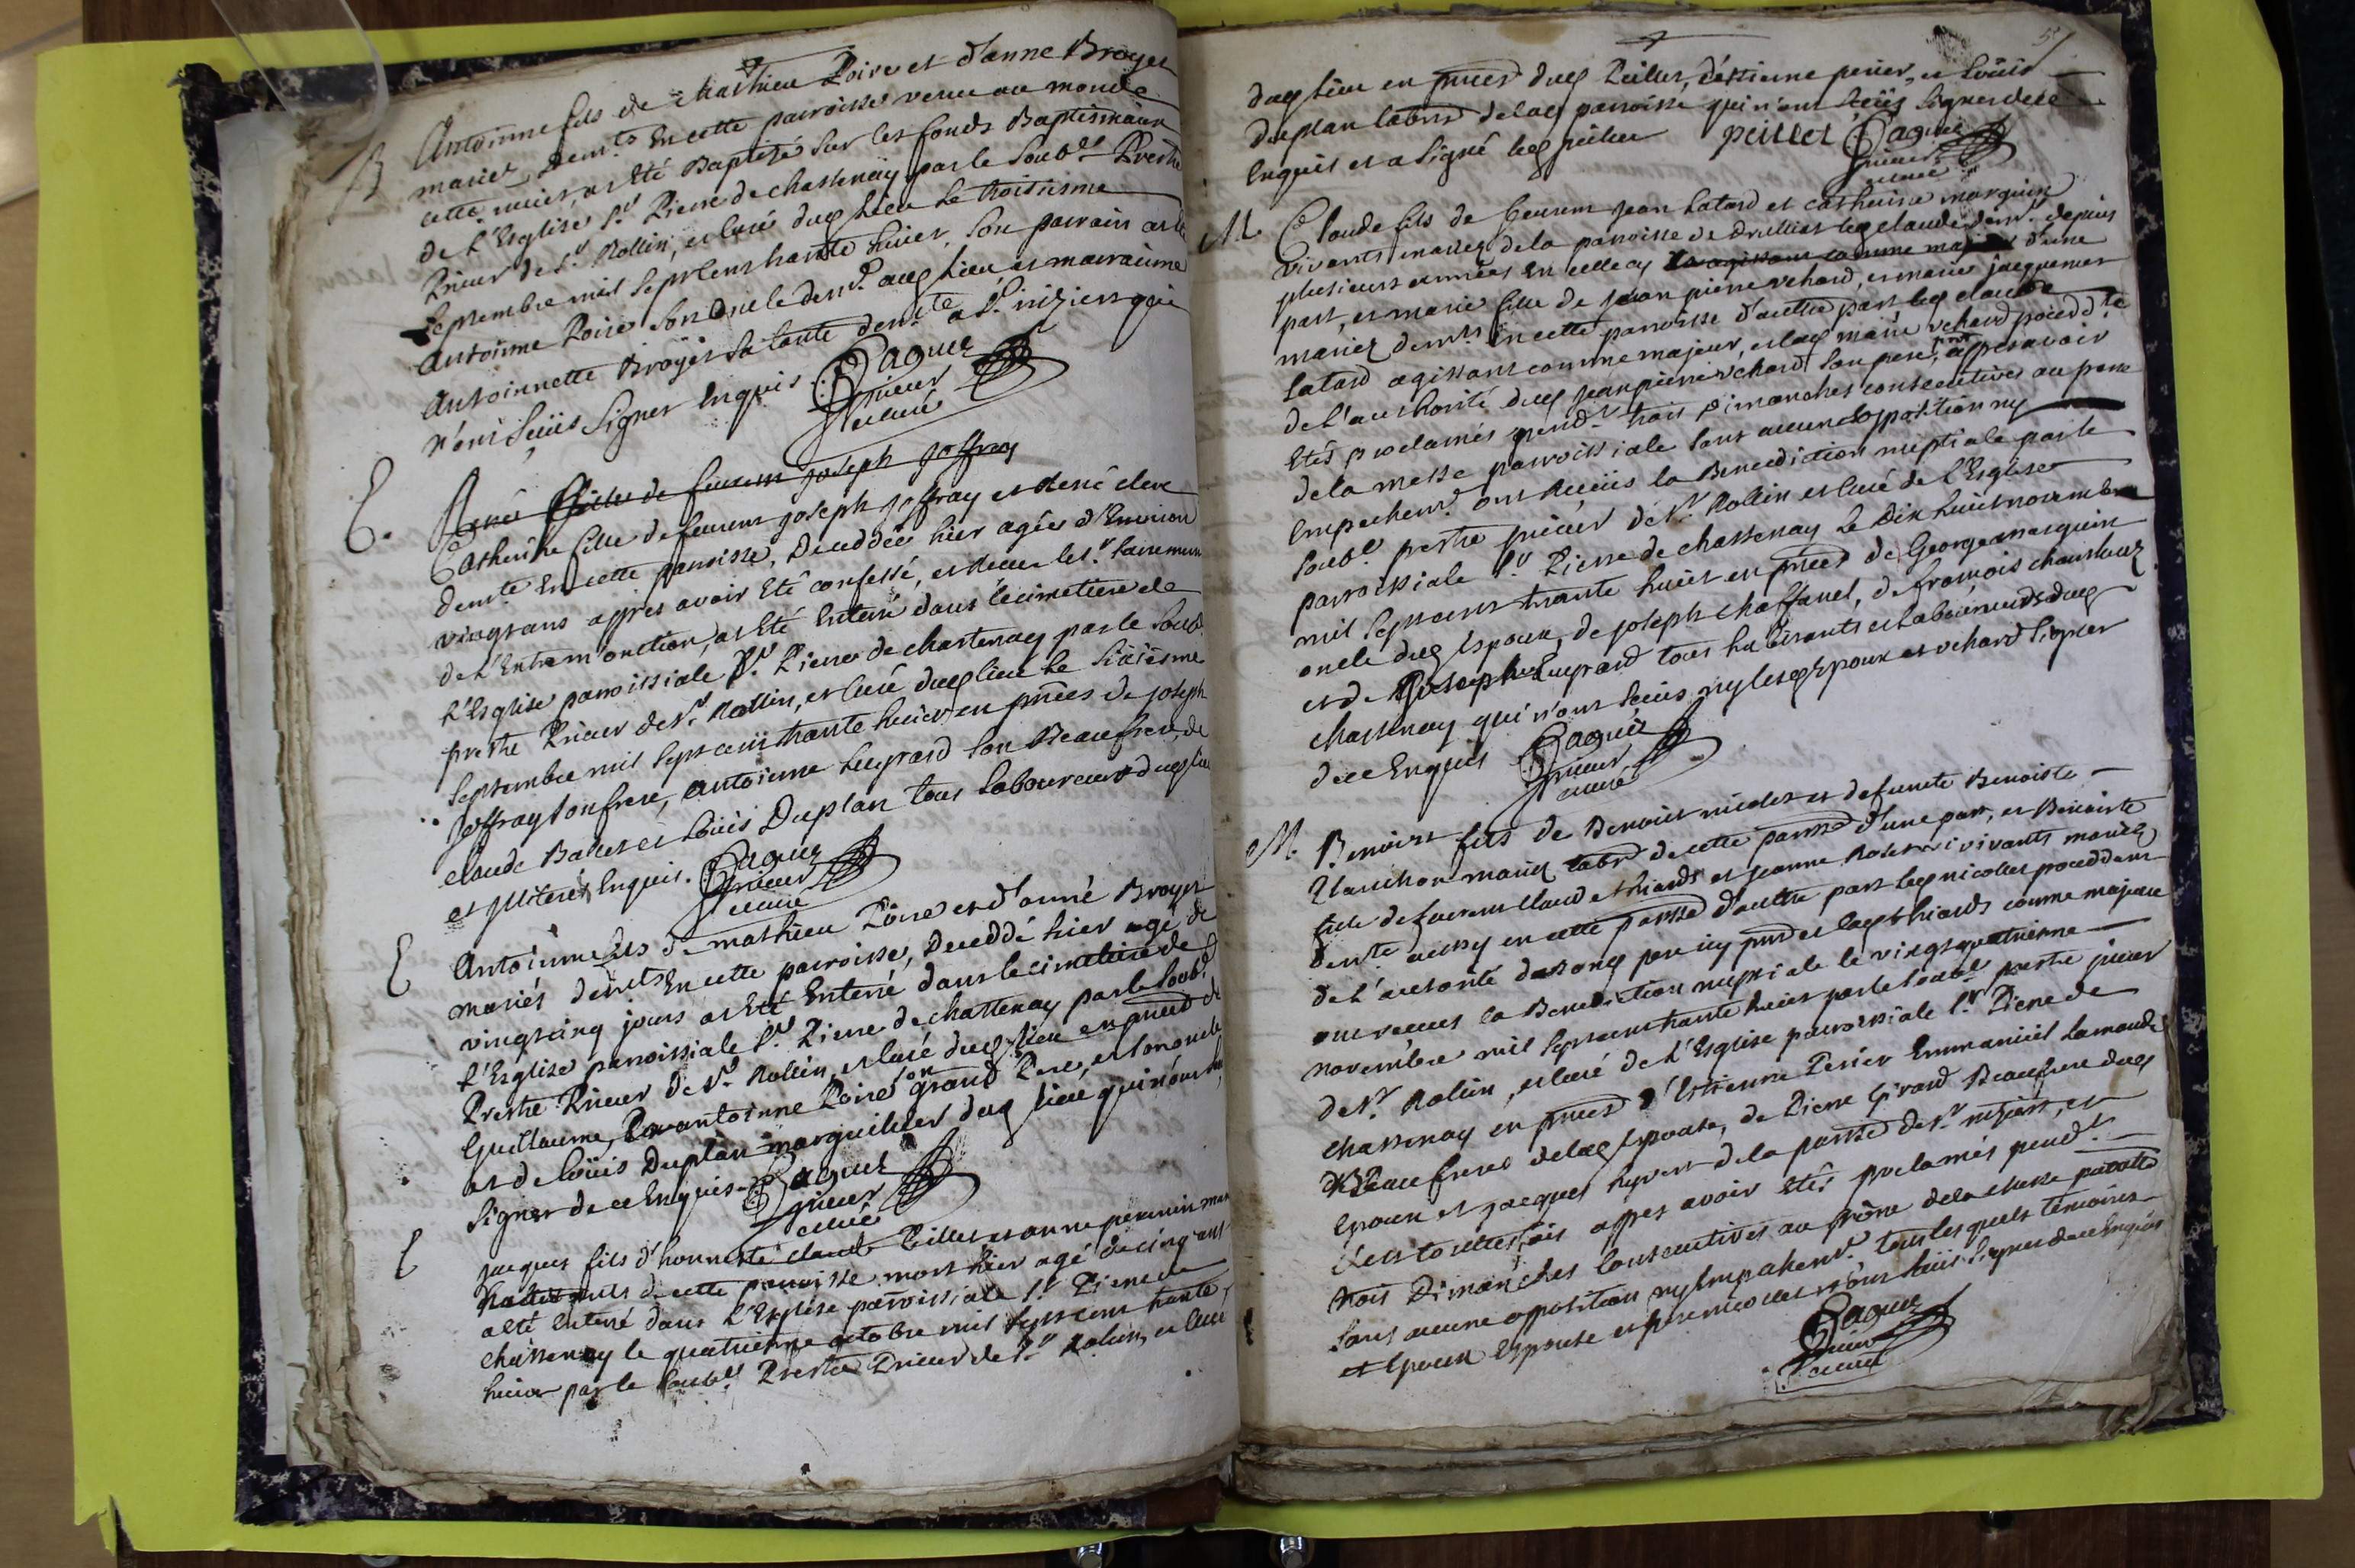 B Antoinne fils de Mathieu Poire et d'anne Broyer
mariez demts En cette parroisse venu au monde
cette nuict, at Eté Baptisé sur les fonds Baptismaux
de L'Esglise St Pierre de chastenay par le soubé Prestre
Prieur de St Rollin, et Curé duq lieu le troisiesme
septembre mil sept cens trante huict, son parrain at été
Antoinne Poire son oncle demt auq lieu et marraine
Antoinnette Broyer sa tante demte a St nizier qui
n'ont sçüis signer Enquis. Paquer
prieur
et curé
E. Renée fille de feu joseph joffray
Catherine fille de feu joseph joffray et Renée clere
demte En cette parroisse, Deceddée hier agée d'Environ
vingt ans appres avoir Eté confessé, et Receu le St Sacrement
de L'Extrem'onction, at Eté Enterré dans le cimetiere de
L'Esglise parroissiale St Pierre de chastenay par le soubé
prestre Prieur de St Rollin, et Curé duq lieu le sixiesme
septembre mil sept cens trante huict en pnces de joseph
joffray son frere, antoinne Lugrand son Beaufrere, de
claude et Loüis Duplan tous Laboureurs duq lieu
et illiterés Enquis. Paquer
prieur
et curé
E Antoinne fils de mathieu Poire et d'anne Broyer
mariés demts En cette parroisse, Deceddé hier agé de
vingt cinq jours at Eté Enterré dans le cimetiere de
L'Esglise parroissiale St Pierre de chastenay par le soubé
Prestre Prieur de St Rollin, et Curé duq lieu en pnces de
Guillaume, antoinne Poire son grand Pere, et son oncle
et de Loüis Duplan marguillier duq lieu qui n'ont sçu
signer de ce Enquis Paquer
prieur
et curé
E jacques fils d'honneste claude Pillier et anne perrenin
de cette parroisse mort hier agé de cinq ans
at eté Enterré dans L'Esglise parroissiale St Pierre de
chastenay le quatriesme octobre mil sept cens trante
huict par le soubé Prestre Prieur de St Rollin, et Curé
duq lieu en pnces duq Pillier, d'estienne perier, et Loüis
duplan labrs de laq parroisse qui n'ont sçüis signer de ce
Enquis et a signé leq pillier Paquer
prieur
et curé
M. Claude fils de jean Latard et catherine marquin
vivants mariez de la parroisse de leq claude demt depuis
plusieurs années En celle cy d'une
part, et marie fille de jean pierre vchard, et marie jacquemet
mariez demts En cette parroisse d'autre part leq claude
Latard agissant comme majeur, et laq marie vchard
de L'authorité duq jean pierre vchard son pere, appres avoir
Etés proclamés pendt trois Dimanches consecutives au prone
de la messe parroissiale sans aucune opposition ny
Empechemt ont Reçüis la Benediction nuptiale par le
soubé prestre prieur de St Rollin et Curé de L'Esglise
parroissiale St Pierre de chastenay le Dix huict novembre
mil sept cens trante huict en pnces de George marquin
oncle duq Espoux, de joseph chaffanel, de françois
et de joseph Lugrand tous habitants et Laboureurs duq
chastenay qui n'ont sçüis ny lesq Espoux et vchard signer
de ce Enquis Paquer
prieur
et curé
M. Benoist fils de Benoist nicolet et defuncte Benoiste
Planchon mariez labrs de cette parrsse d'une part, et Benoiste
fille de feu Claude thiard et jeanne Rolet vivants mariez
demte aussy en cette parrsse d'autre part leq nicolet
de L'autorité de sond pere icy pnt et laq thiard comme majeure
ont receus la Benediction nuptiale le vingt quatriesme
novembre mil sept cens trante huict par le soubé prestre prieur
de St Rolin, et Curé de L'Esglise parroissiale St Pierre de
chastenay en pnces d'Estienne Perier Emmanüel Lamonde
Beaufreres de laq Espouse, de Pierre Girard Beaufrere duq
Epoux et jacques hyvert de la parrsse de St nizier, et
appres avoir Etés proclamés pendt
trois Dimanches consecutives au prône de la Messe
sans aucune opposition ny Empechemt tous lesquels témoins
et Epoux Espouse et pere nicolet n'ont sçüis signer de ce Enquis
Paquer
prieur
et curé